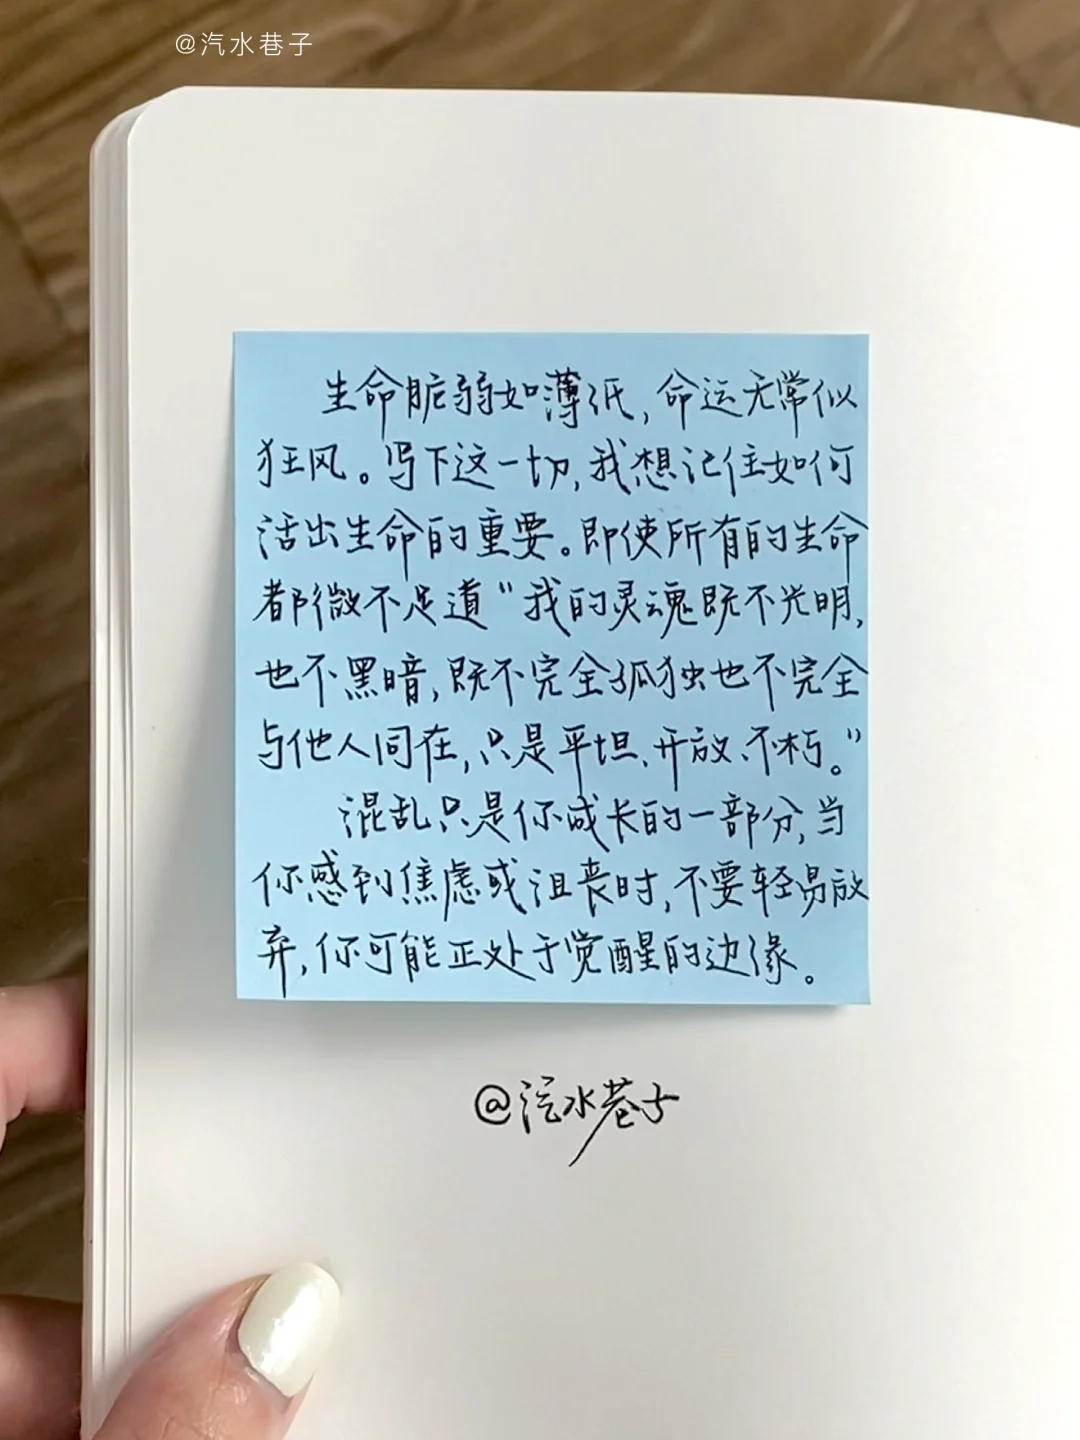 @汽水巷子
生命脆弱如薄纸,命运无常似
狂风。写下这一切,我想记住如何
活出生命的重要。即使所有的生命
都微不足道“我的灵魂既不光明,
也不黑暗,既不完全孤独也不完全
与他人同在,只是平坦、开放、不朽。”
混乱只是你成长的一部分,当
你感到焦虑或沮丧时,不要轻易放
弃,你可能正处于觉醒的边缘。
@汽水巷子